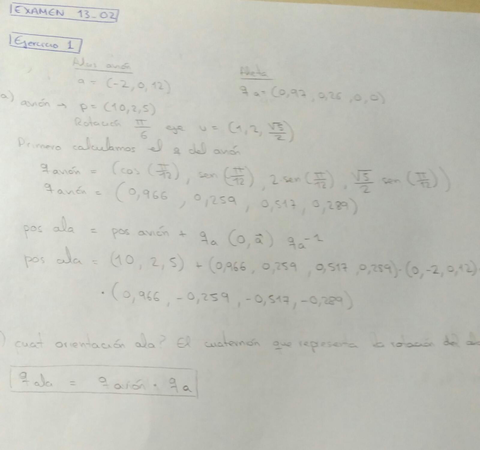 EXAMEN 13-02
Ejercicio 1
avión
a = (-2, 0, 12)
q a = (0,97, 0,26, 0, 0)
a) avión → p = (10, 2, 5)
Rotación π/6 eje v = (1, 2, √5/2)
Primero calculamos el q del avión
q avión = (cos(π/12), sen(π/12), 2 sen(π/12), √5/2 sen(π/12))
q avión = (0,966, 0,259, 0,517, 0,289)
pos ala = pos avión + q a (0, a⃗) q a⁻¹
pos ala = (10, 2, 5) + (0,966, 0,259, 0,517, 0,289) · (0, -2, 0, 12) ·
· (0,966, -0,259, -0,517, -0,289)
) cuál orientación ala? El cuaternión que representa la rotación del
q ala = q avión · q a